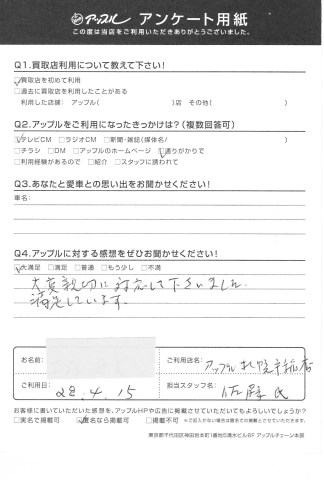 アップル アンケート用紙
この度は当店をご利用いただきありがとうございました。
Q1.買取店利用について教えて下さい!
☑買取店を初めて利用
□過去に買取店を利用したことがある
利用した店舗: アップル( )店 その他( )
Q2.アップルをご利用になったきっかけは?(複数回答可)
☑テレビCM □ラジオCM □新聞・雑誌(媒体名/ )
□チラシ □DM □アップルのホームページ ☑通りがかりで
□利用経験があるので □紹介 □スタッフに誘われて
Q3.あなたと愛車との思い出をお聞かせください!
車名:
Q4.アップルに対する感想をぜひお聞かせください!
☑大満足 □満足 □普通 □もう少し □不満
大変親切に対応して下さいました。
満足しています。
お名前:
ご利用店名: アップル札幌手稲店
ご利用日: 28.4.15
担当スタッフ名: 佐藤氏
お客様に書いていただいた感想を、アップルHPや広告に掲載させていただいてもよろしいでしょうか?
□実名で掲載可 ☑匿名なら掲載可 □掲載不可 ※ご記入がない場合は匿名での掲載とさせていただきます。
東京都千代田区神田岩本町1番地05清水ビル6F アップルチェーン本部